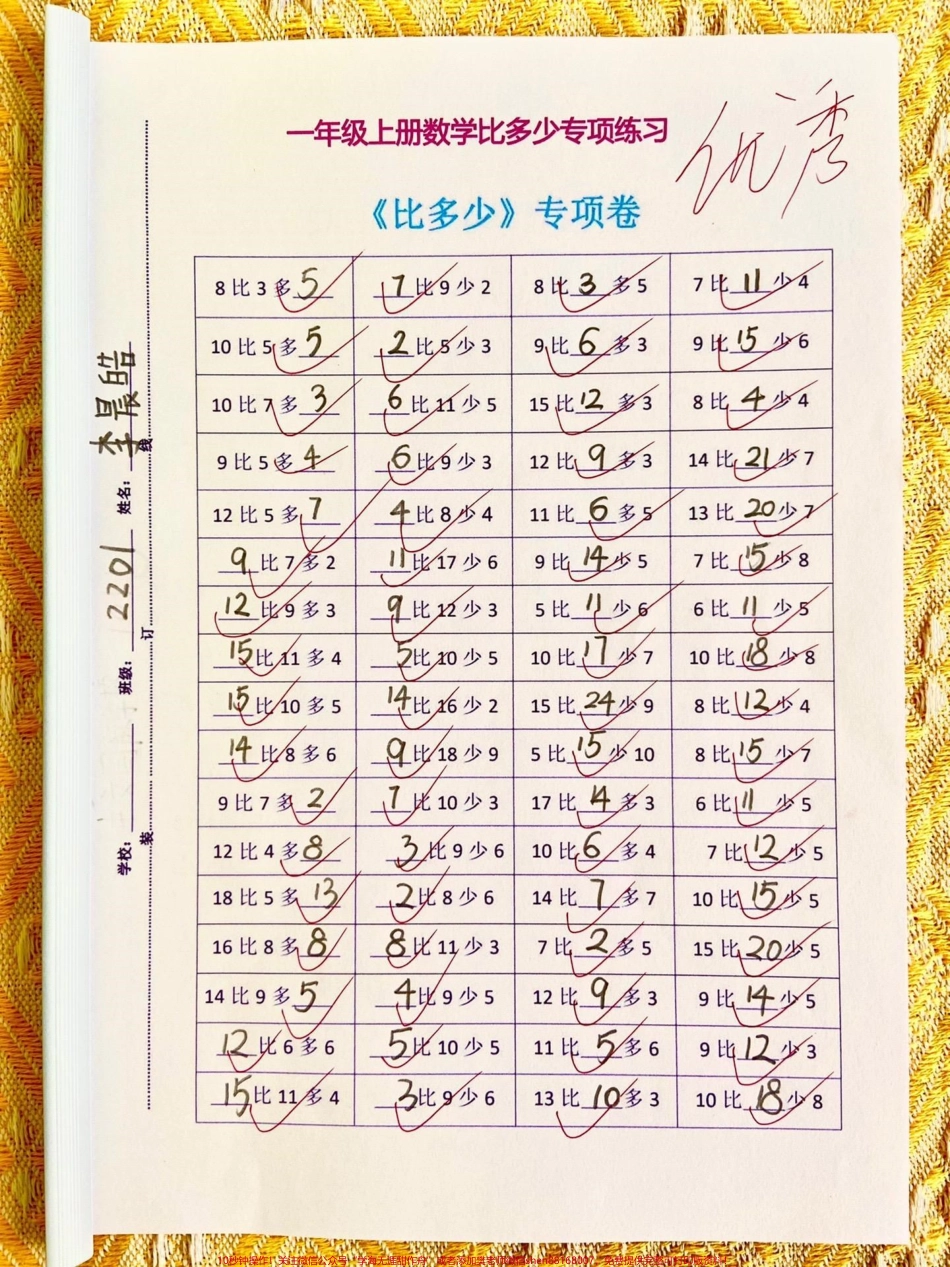 一年级上册数学比多少专项练习
优秀
《比多少》专项卷
8 比 3 多 5 7 比 9 少 2 8 比 3 多 5 7 比 11 少 4
10 比 5 多 5 2 比 5 少 3 9 比 6 多 3 9 比 15 少 6
10 比 7 多 3 6 比 11 少 5 15 比 12 多 3 8 比 4 少 4
9 比 5 多 4 6 比 9 少 3 12 比 9 多 3 14 比 21 少 7
12 比 5 多 7 4 比 8 少 4 11 比 6 多 5 13 比 20 少 7
9 比 7 多 2 11 比 17 少 6 9 比 14 少 5 7 比 15 少 8
12 比 9 多 3 9 比 12 少 3 5 比 11 少 6 6 比 11 少 5
15 比 11 多 4 5 比 10 少 5 10 比 17 少 7 10 比 18 少 8
15 比 10 多 5 14 比 16 少 2 15 比 24 少 9 8 比 12 少 4
14 比 8 多 6 9 比 18 少 9 5 比 15 少 10 8 比 15 少 7
9 比 7 多 2 7 比 10 少 3 17 比 14 多 3 6 比 11 少 5
12 比 4 多 8 3 比 9 少 6 10 比 6 多 4 7 比 12 少 5
18 比 5 多 13 2 比 8 少 6 14 比 7 多 7 10 比 15 少 5
16 比 8 多 8 8 比 11 少 3 7 比 2 多 5 15 比 20 少 5
14 比 9 多 5 4 比 9 少 5 12 比 9 多 3 9 比 14 少 5
12 比 6 多 6 5 比 10 少 5 11 比 5 多 6 9 比 12 少 3
15 比 11 多 4 3 比 9 少 6 13 比 10 多 3 10 比 18 少 8
学校： 班级：2201 姓名：李晨皓
装 订 线